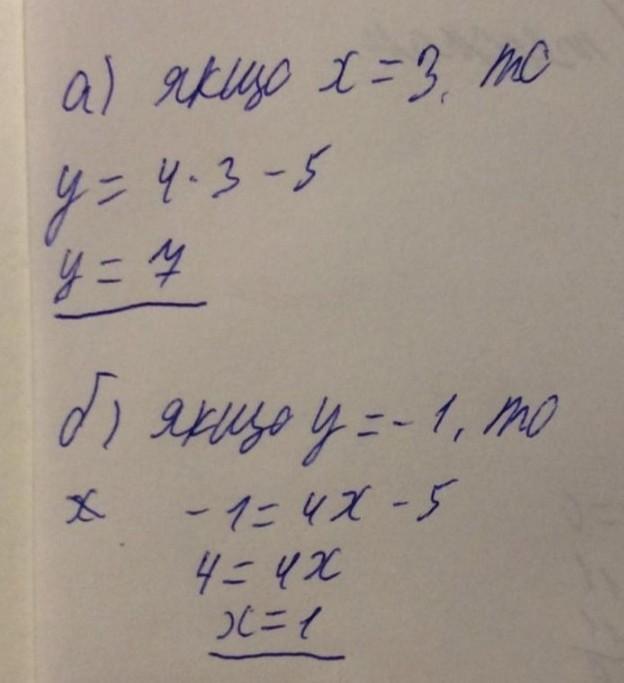 а) якщо x = 3, то
y = 4 · 3 - 5
y = 7
б) якщо y = - 1, то
x - 1 = 4x - 5
4 = 4x
x = 1